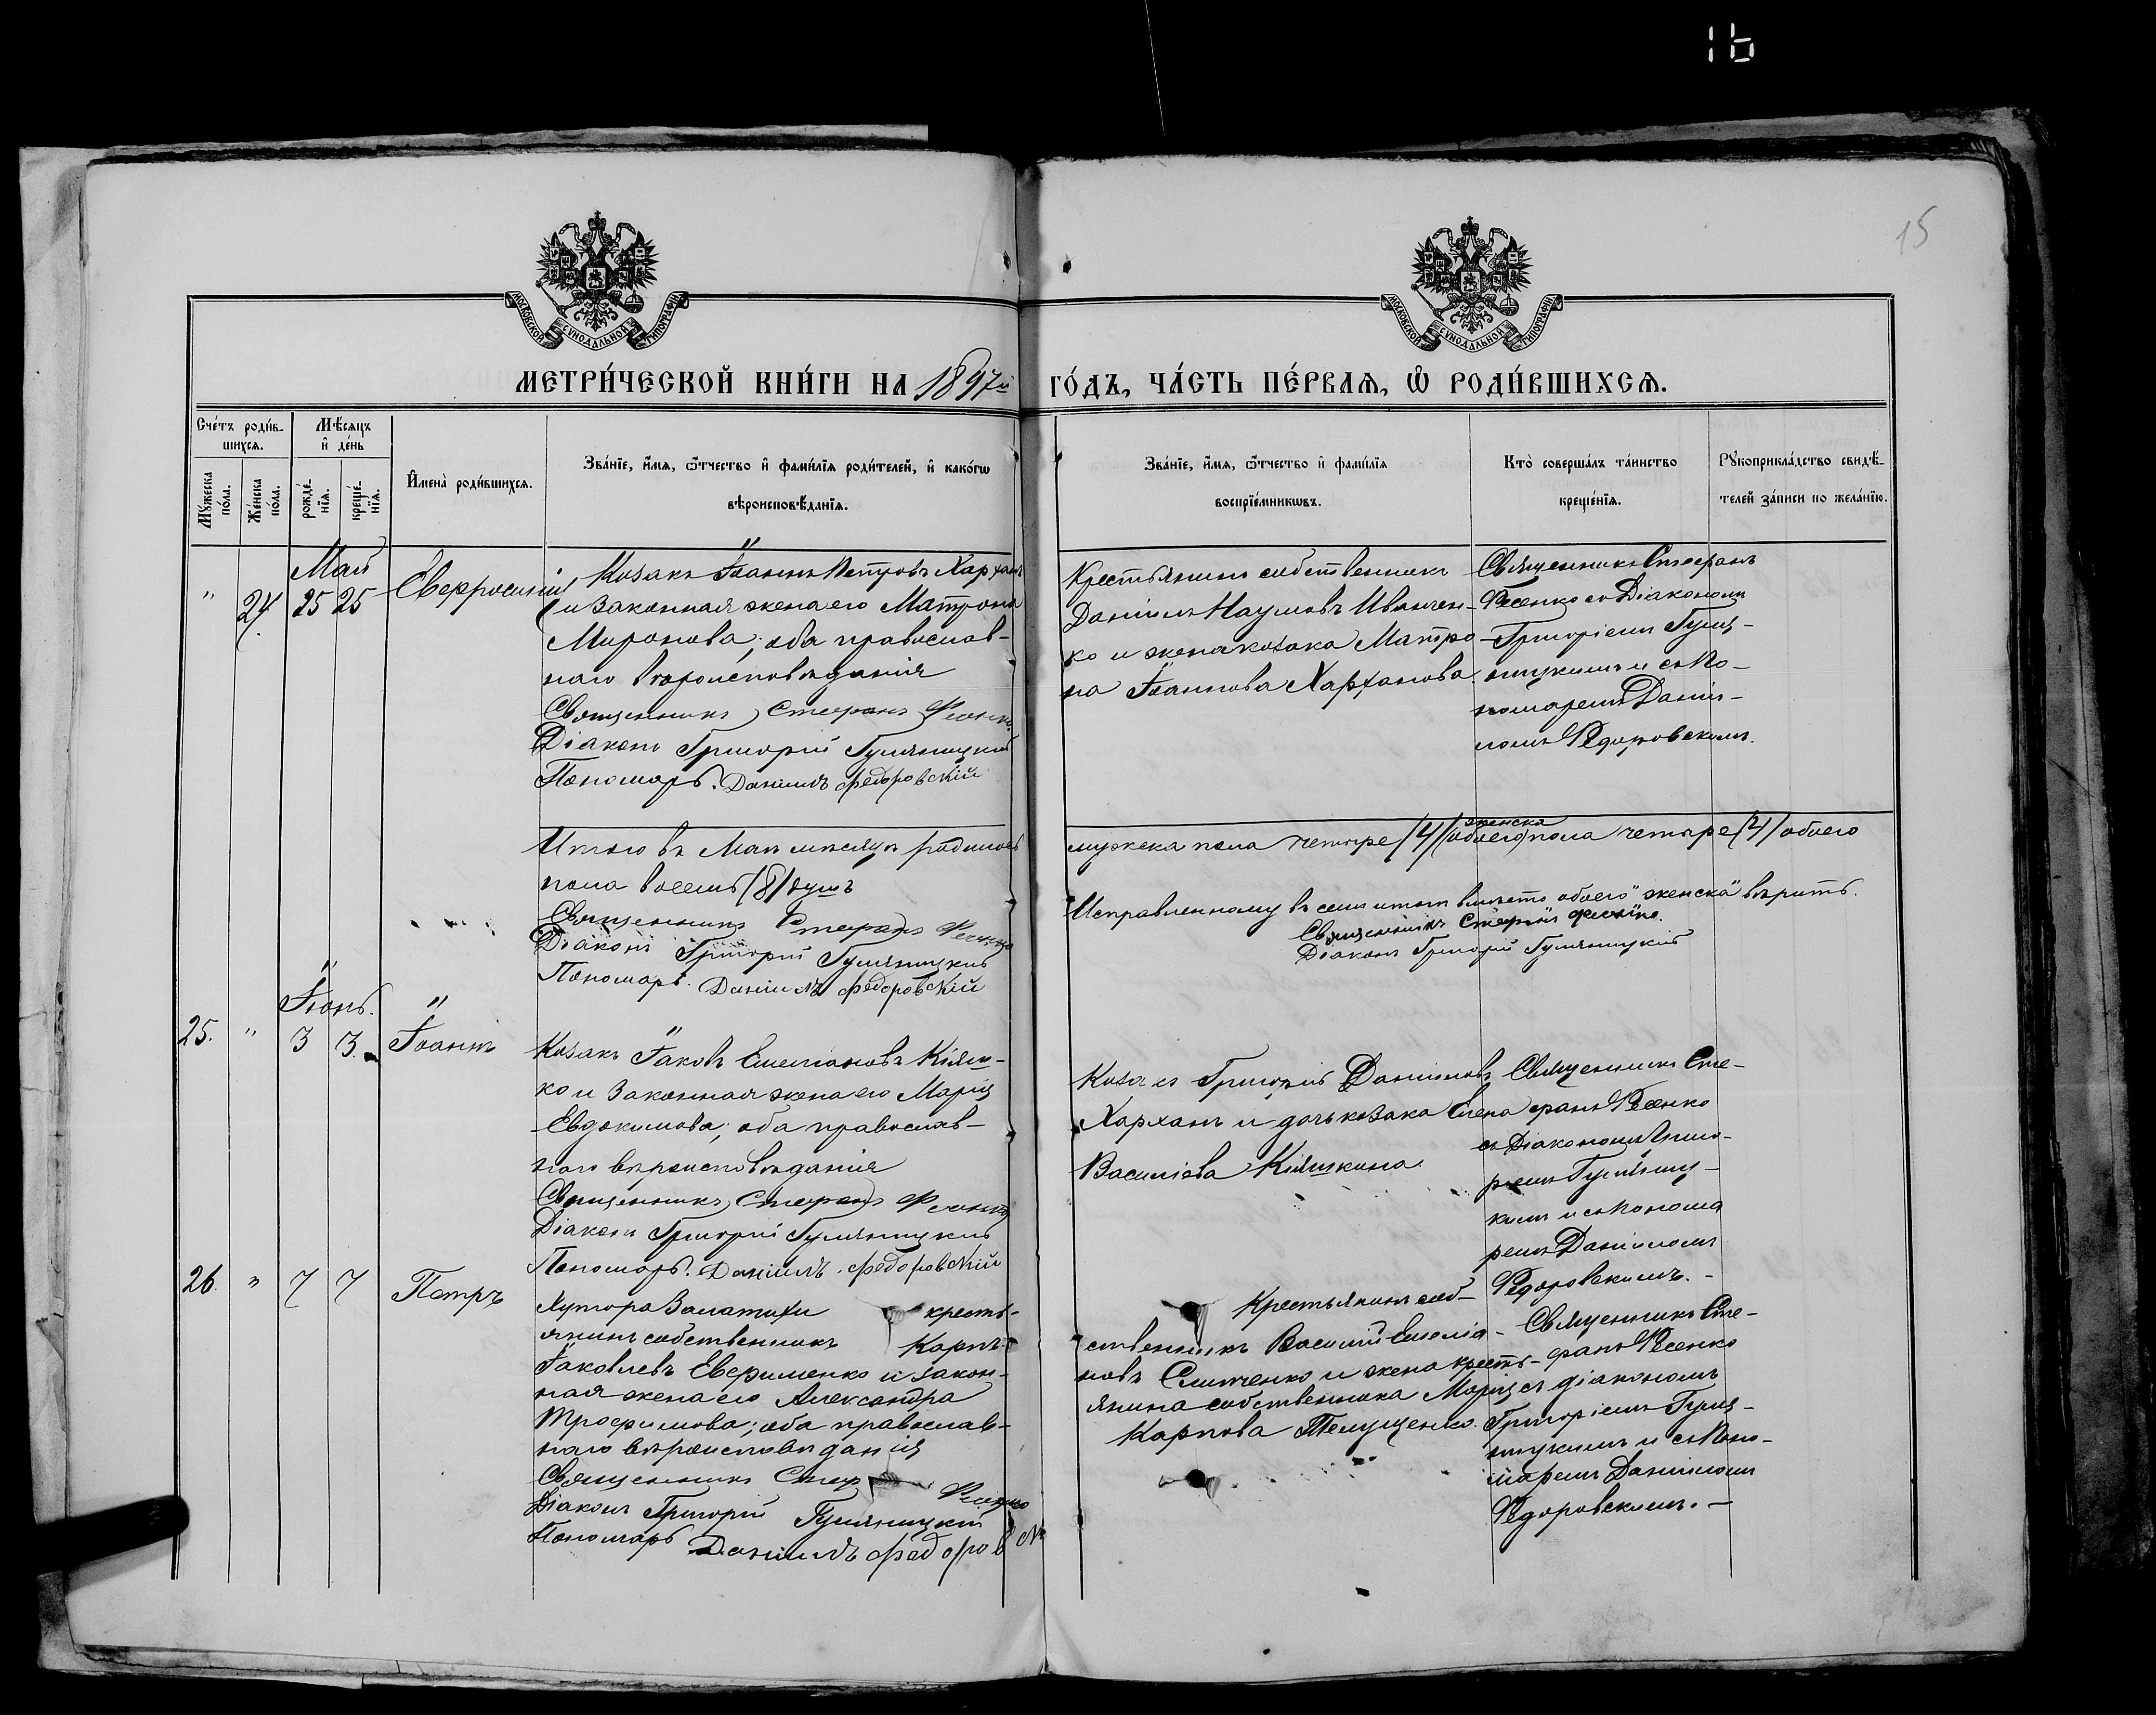 16
15
МОСКОВСКОЙ СУНОДАЛЬНОЙ ТИПОГРАФІИ
МОСКОВСКОЙ СУНОДАЛЬНОЙ ТИПОГРАФІИ
МЕТРИ́ЧЕСКОЙ КНИ́ГИ НА 1897й ГО́ДЪ, ЧА́СТЬ ПЕ́РВАѦ, Ѿ РОДИ́ВШИХСѦ.
Сче́тъ роди́в-
шихсѧ.
Мꙋ́жеска
по́ла.
Же́нска
по́ла.
Мѣ́сѧцъ
и҆ де́нь
рожде́-
нїѧ.
креще́-
нїѧ.
И҆мена̀ роди́вшихсѧ.
Зва́нїе, и҆́мѧ, ѻ҆́тчество и҆ фами́лїѧ роди́телей, и҆ како́гѡ
вѣроисповѣ́данїѧ.
Зва́нїе, и҆́мѧ, ѻ҆́тчество и҆ фами́лїѧ
воспрїе́мникѡвъ.
Кто̀ соверша́лъ та́инство
креще́нїѧ.
Рꙋкоприкла́дство свидѣ́-
телей за́писи по жела́нїю.
Май
" 24. 25 25
Козакъ Іоаннъ Петровъ Харханъ
и законная жена его Матрона
Миронова; оба православ-
наго вѣроисповѣданія
Священникъ Стефанъ Фесенко
Діаконъ Григорій Гуляницкій
Пономарь. Даніилъ Федоровскій
Крестьянинъ собственникъ
Даніилъ Наумовъ Иванчен-
ко и жена козака Матро-
на Іоаннова Харханова.
Священникъ Стефанъ
Фесенко съ Діакономъ
Григоріемъ Гуля-
ницкимъ и съ По-
номаремъ Дании-
ломъ Федоровскимъ.
Итого въ Маѣ мѣсяцѣ родилось мужеска пола четыре /4/ (обоего) женска пола четыре /4/ обоего
пола восемь /8/ душъ
Священникъ Стефанъ Фесенко
Діаконъ Григорій Гуляницкій
Пономарь. Даніилъ Федоровскій
Исправленному въ семъ итогѣ вмѣсто обоего "женска" вѣрить.
Священникъ Стефанъ Фесенко.
Діаконъ Григорій Гуляницкій
Іюнь.
25. " 3 3. Іоаннъ
Козакъ Іаковъ Емеліановъ Кіяш-
ко и законная жена его Марія
Евдокимова; оба православ-
наго вѣроисповѣданія
Священникъ Стефанъ Фесенко
Діаконъ Григорій Гуляницкій
Пономарь. Даніилъ Федоровскій
Козакъ Григорій Даніиловъ
Харханъ и дочь козака Елена
Василіева Кіяшкина.
Священникъ Сте-
фанъ Фесенко
съ Діакономъ Григо-
ріемъ Гуляниц-
кимъ и съ Понома
ремъ Даніиломъ
Федоровскимъ. -
26. " 7 7 Петръ
Хутора кресть-
янинъ собственникъ Карпъ
Іаковлевъ Евфименко и закон-
ная жена его Александра
Трофимова; оба православ-
наго вѣроисповѣданія
Священникъ Стеф Фесенко
Діаконъ Григорій Гуляницкій
Пономарь Даніилъ Федоровск
Крестьянинъ соб-
ственникъ Василій Емеліа-
новъ и жена кресть-
янина собственника Марія
Карпова
Священникъ Сте-
фанъ Фесенко
съ діакономъ
Григоріемъ Гуля-
ницкимъ и съ Поно-
маремъ Даніиломъ
Федоровскимъ. -